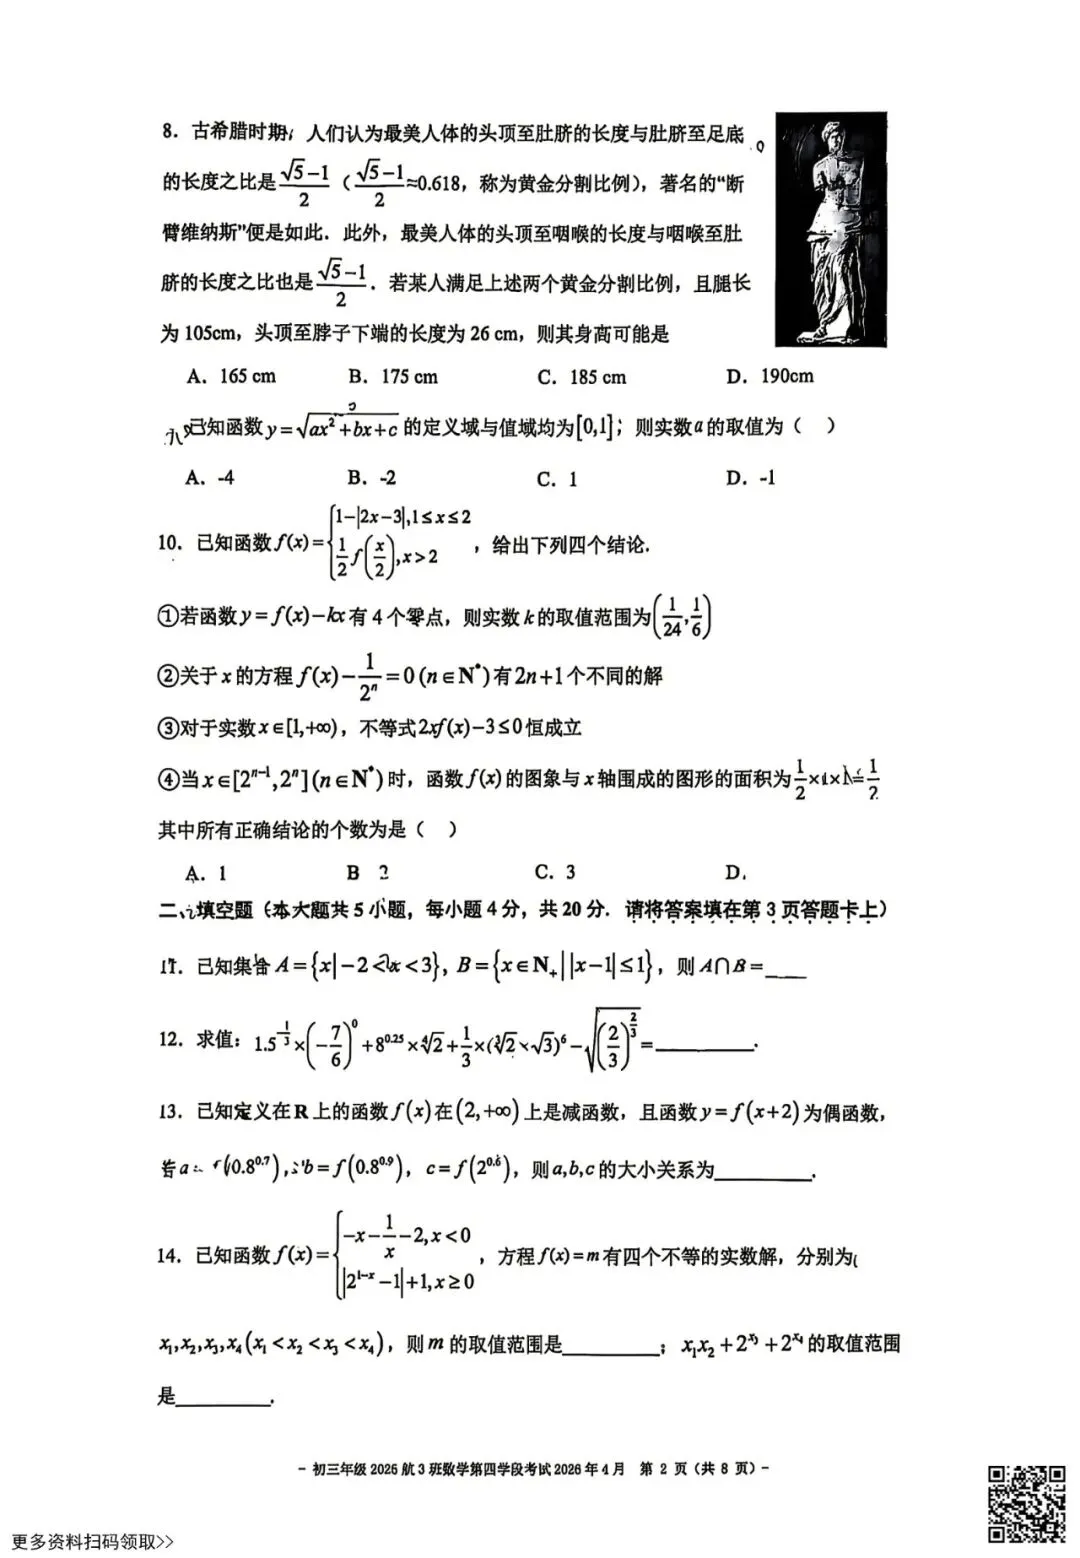 8. 古希腊时期，人们认为最美人体的头顶至肚脐的长度与肚脐至足底
的长度之比是 $\frac{\sqrt{5}-1}{2}$（$\frac{\sqrt{5}-1}{2}$≈0.618，称为黄金分割比例），著名的“断
臂维纳斯”便是如此．此外，最美人体的头顶至咽喉的长度与咽喉至肚
脐的长度之比也是 $\frac{\sqrt{5}-1}{2}$．若某人满足上述两个黄金分割比例，且腿长
为 105cm，头顶至脖子下端的长度为 26 cm，则其身高可能是
A. 165 cm B. 175 cm C. 185 cm D. 190cm
已知函数 $y=\sqrt{ax^2+bx+c}$ 的定义域与值域均为[0,1]；则实数a的取值为（ ）
A. -4 B. -2 C. 1 D. -1
10. 已知函数 $f(x)=\begin{cases}1-|2x-3|,1≤x≤2\\ \frac{1}{2}f\left(\frac{x}{2}\right),x>2\end{cases}$，给出下列四个结论.
①若函数 $y=f(x)-kx$ 有 4 个零点，则实数 k 的取值范围为 $\left(\frac{1}{24},\frac{1}{6}\right)$
②关于 x 的方程 $f(x)-\frac{1}{2^n}=0(n∈N^*)$ 有 2n+1 个不同的解
③对于实数 x∈[1,+∞)，不等式 2xf(x)-3≤0 恒成立
④当 $x∈[2^{n-1},2^n](n∈N^*)$ 时，函数 f(x) 的图象与 x 轴围成的图形的面积为 $\frac{1}{2}×1×1=\frac{1}{2}$
其中所有正确结论的个数为是（ ）
A. 1 B 2 C. 3 D.
二、填空题（本大题共 5 小题，每小题 4 分，共 20 分．请将答案填在第 3 页答题卡上）
11. 已知集合 $A=\{x|-2<x<3\}$, $B=\{x∈N_+||x-1|≤1\}$，则 A∩B=____
12. 求值：$1.5^{-\frac{1}{3}}×\left(-\frac{7}{6}\right)^0+8^{0.25}×\sqrt[4]{2}+\frac{1}{3}×(\sqrt[3]{2}×\sqrt{3})^6-\sqrt{\left(\frac{2}{3}\right)^{\frac{2}{3}}}$=________.
13. 已知定义在 R 上的函数 f(x) 在 (2,+∞) 上是减函数，且函数 y=f(x+2) 为偶函数，
若 $a=f(0.8^{0.7})$, $b=f(0.8^{0.9})$，$c=f(2^{0.6})$，则 a,b,c 的大小关系为________.
14. 已知函数 $f(x)=\begin{cases}-x-\frac{1}{x}-2,x<0\\ |2^{1-x}-1|+1,x≥0\end{cases}$，方程 f(x)=m 有四个不等的实数解，分别为
$x_1,x_2,x_3,x_4(x_1<x_2<x_3<x_4)$，则 m 的取值范围是________；$x_1x_2+2^{x_3}+2^{x_4}$ 的取值范围
是________.
- 初三年级 2026 航 3 班数学第四学段考试 2026 年 4 月 第 2 页（共 8 页）-
更多资料扫码领取>>